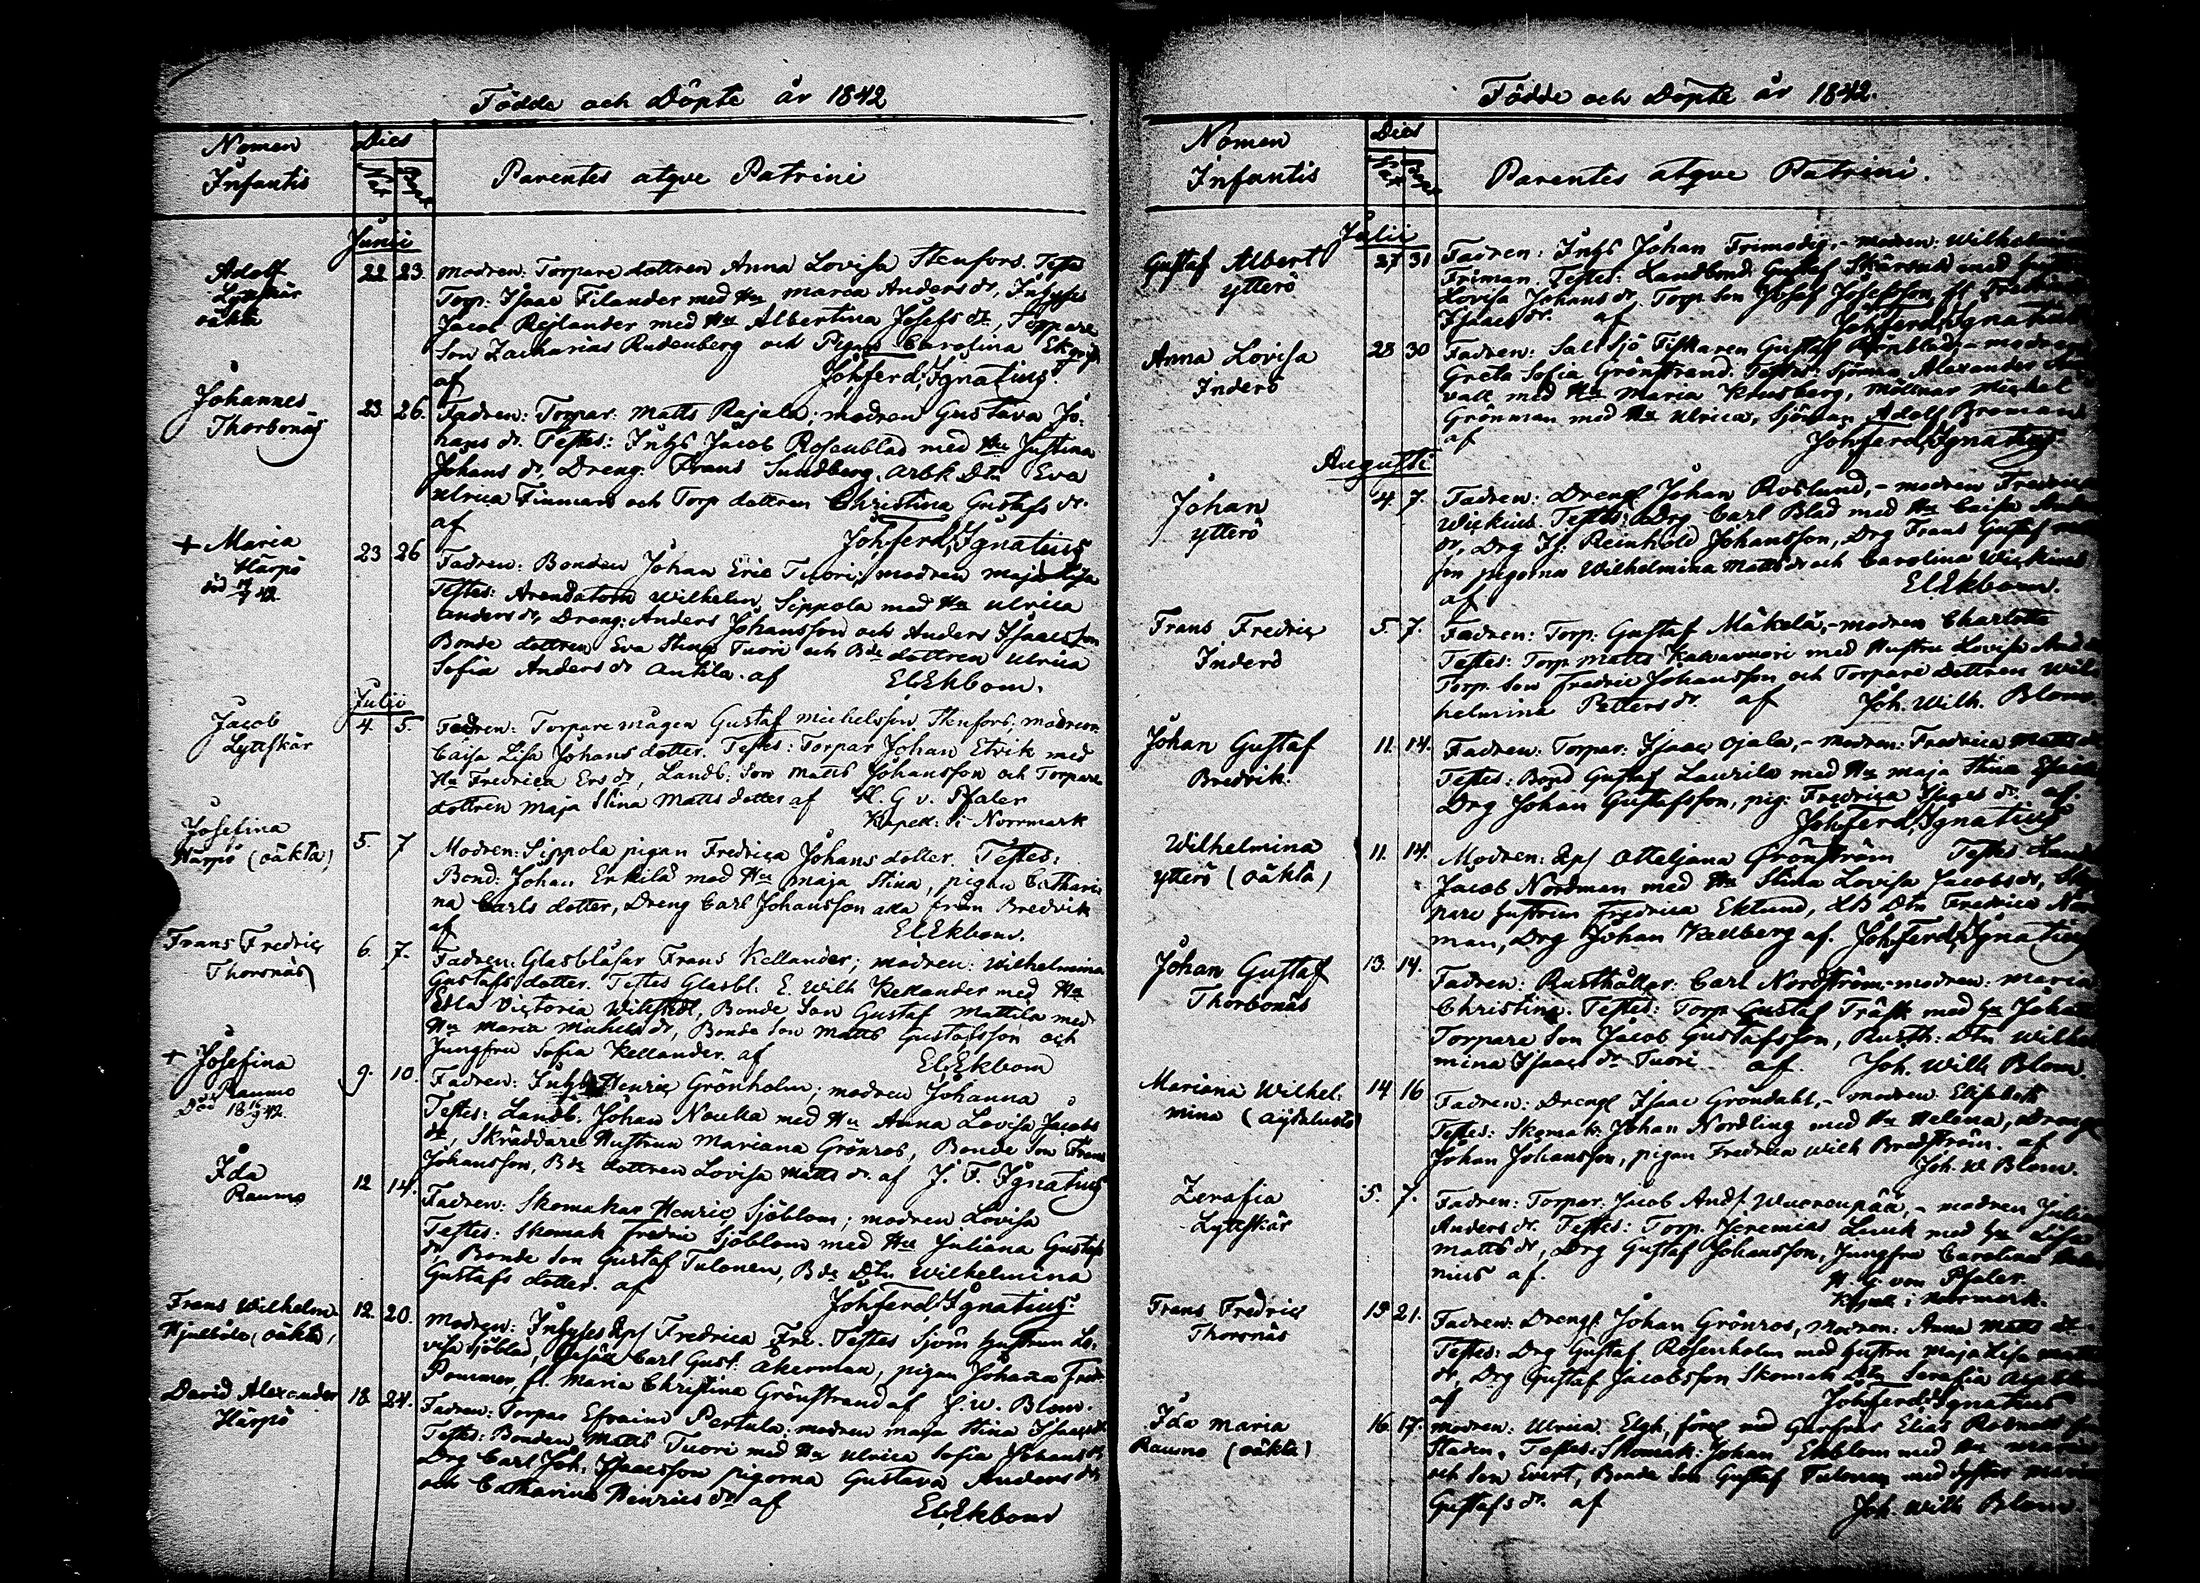 Födde och Döpte år 1842
Nomen
Infantis
Dies
Parentes atque Patrini
Junii
Adolf
Lyttskär
oäkta
22 23.
modren: Torpare dottren Anna Lovisa Stenfors. Teste
Torp. Isaac Filander med Hu maria Anders dr, Inhyses
Jacob Rejlander med Hu Albertina Josefs dr, Torpare
Son Zacharias Rudenberg och Pigan Carolina
af Joh. Ferd. Ignatius.
Johannes
Thorbonäs
23. 26.
Fadren: Torpar: Matts Rajala; modren Gustava Jo-
hans dr. Testes: Inhs Jacob Rosenblad med Hu Justina
Johans dr. Dreng: Frans Sundberg, arbk Dtn Eva
Ulrica Finnman och Torp dottren Christina Gustafs dr.
af Joh. Ferd. Ignatius
+ Maria
Härpö
23 26
Fadren: Bonden Johan Eric Tuori; modren maja Lisa
Testes: Arendatorn Wilhelm Sippola med Hu Ulrica
Anders dr, Dreng: Anders Johansson och Anders Isaacsson
Bonde dottren Eva Stina Tuori och Bde dottren Ulrica
Sofia Anders dr Antila. af El. Ekbom.
Julii
Jacob
Lyttskär
4. 5.
Fadren: Torpare mågen Gustaf michelsson Stenfors; modren
Caisa Lisa Johans dotter. Testes: Torpar Johan Etvik med
Hu Fredrica Ers dr, Landb. Son Matts Johansson och Torpare
dottren Maja Stina Matts dotter af H. G v. Pfaler
Kapell: i Norrmark
Josefina
Härpö (oäkta)
5. 7
Modren: Sippola pigan Fredrica Johans dotter. Testes:
Bond: Johan Erkilä med Hu maja Stina, pigan Cathari
na Carls dotter, Dreng Carl Johansson alla från Bredvik
af El. Ekbom.
Frans Fredric
Thorsnäs
6. 7.
Fadren: Glasblåsar Frans Kellander; modren: Wilhelmina
Gustafs dotter. Testes Glasbl. E. Wilh Kellander med Hu
Edla Victoria, Bonde Son Gustaf Mattila med
Hu maria Michels dr, Bonde Son Matts Gustafsson och
Jungfru Sofia Kellander. af El. Ekbom
+ Josefina
Raumo
9. 10.
Fadren: Inhs Henric Grönholm; modren Johanna
Testes: Landb. Johan Nauha med Hu Anna Lovisa Jacobs
dr, Skräddare Hustrun Mariana Grönros, Bonde Son Frans
Johansson, Bde dottren Lovisa Matts dr. af J. F. Ignatius
Ida
Raumo
12 14.
Fadren: Skomakar Henric Sjöblom; modren Lovisa
Testes: Skomak Fredric Sjöblom med Hu Juliana Gustafs
dr, Bonde Son Gustaf Tulonen, Bde Dtn Wilhelmina
Gustafs dotter. af Joh. Ferd. Ignatius.
Frans Wilhelm
Hjulböle (oäkta)
12. 20.
Modren: Inhyses Fredrica. Testes Sjöm Hustrun Lo-
visa Sjöblad, Carl Gust: Åkerman, pigan Johanna
Pommer, fl. Maria Christina Grönstrand af J. W. Blom.
David Alexander
Härpö
18 24.
Fadren: Torpar Efraim Pertula; modren maja Stina Isaacs dr
Testes: Bonden Matts Tuori med Hu Ulrica Sofia Johans dr,
Drg Carl Joh. Isaacsson pigorna Gustava Anders dr
och Catharina Henrics dr af El. Ekbom
Födde och Döpte år 1842.
Nomen
Infantis
Dies
Parentes atque Patrini.
Julii
Gustaf Albert
ytterö
27 31
Fadren: Inhs Johan Frimodig, - modren: Wilhelmina
Friman. Testes: Landbond Gustaf med
Lovisa Johans dr. Torp. Son Josef Josefsson
Isaacs dr. af Joh. Ferd. Ignatius
Anna Lovisa
Inderö
28 30
Fadren: Saltsjö Fiskaren Gustaf; - modren:
Greta Sofia Grönstrand. Testes: Sjöman Alexander
vall med Hu Maria, Möllnar Michel
Grönman med Hu Ulrica, Sjöman Adolf Broman
af Joh. Ferd. Ignatius
Augusti
Johan
ytterö
4. 7.
Fadren: Dreng Johan Roslund, - modren Fredrica
Wickius. Testes: Drg Carl Blad med Hu Caisa
dr, Drg Reinhold Johansson, Drg Frans Gustaf
son pigorna Wilhelmina Matts dr och Carolina Wickius
af El. Ekbom.
Frans Fredric
Inderö
5. 7.
Fadren: Torp. Gustaf Mäkelä, - modren Charlotta
Testes: Torp Matts med Hustru Lovisa
Torp. Son Fredric Johansson och Torpare dottren Wil
helmina Petters dr. af Joh. Wilh. Blom.
Johan Gustaf
Bredvik.
11. 14.
Fadren: Torpar: Isaac Ojala, - modren: Fredrica Matts dr
Testes: Bond Gustaf Laurila med Hu maja Stina
Drg Johan Gustafsson, pig: Fredrica Isaacs dr. af
Joh. Ferd. Ignatius
Wilhelmina
ytterö (oäkta)
11. 14.
Modren: Otteljana Grönström Testes: Landb
Jacob Nordman med Hu Stina Lovisa Jacobs dr,
pare hustrun Fredrica Eklund, LB Dtn Fredrica Nor
man, Drg Johan Kellberg af. Joh. Ferd. Ignatius
Johan Gustaf
Thorbonäs
13. 14.
Fadren: Rusthållar: Carl Nordström, - modren: Maria
Christina. Testes: Torp Gustaf Träsk med hu Johan
Torpare Son Jacob Gustafsson, Rusth: Dtn Wilhel
mina Isaacs dr Tuori af. Joh. Wilh Blom.
Mariana Wilhel:
mina
14 16
Fadren: Dreng Isaac Gröndahl, - modren Elisabeth
Testes: Skomak: Johan Nordling med Hu Helena, Dreng
Johan Johansson, pigan Fredrica Wilh Bredström. af
Joh. W Blom.
Zerafia
Lyttskär
5. 7.
Fadren: Torpar: Jacob Andr. Wuorenpää, - modren
Anders dr. Testes: Torp. Jeremias med hu Lisa
Matts dr, Drg Gustaf Johansson, Jungfru Carolina
nius af. H. G von Pfaler.
Kapell: i Norrmark.
Frans Fredric
Thorsnäs
19 21.
Fadren: Dreng: Johan Grönros, modren: Anna Matts dr.
Testes: Drg Gustaf Rosenholm med hustru Maja Lisa
dr, Drg Gustaf Jacobsson Skomak Dtn Serafia
af Joh. Ferd. Ignatius
Ida Maria
Raumo (oäkta)
16. 17.
modren: Ulrica Elgh, förl med Elias
Staden, Testes: Skomak: Johan Ekblom med Hu Maria
och Son Evert, Bonde Son Gustaf Tulonen med syster Maria
Gustafs dr. af Joh. Wilh Blom